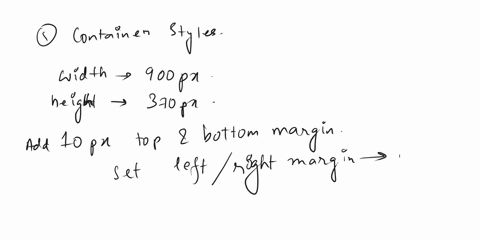 ① Container Styles.
width → 900 px
height → 370 px.
Add 10 px top & bottom margin.
set left/right margin →